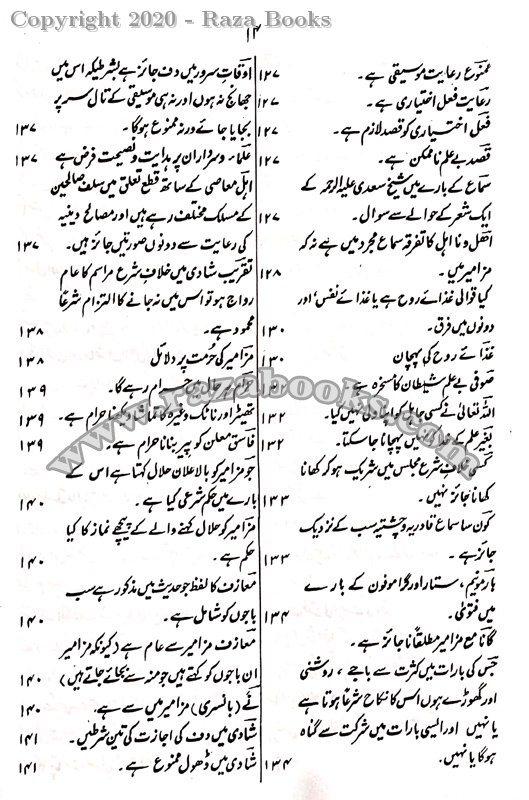 Copyright 2020 - Raza Books
۱۴
ممنوع رعایت موسیقی ہے۔ ۱۲۷
رعایت فعل اختیاری ہے۔ ۱۲۷
فعل اختیاری کو قصد لازم ہے۔ ۱۲۷
قصد بے علم ناممکن ہے۔ ۱۲۷
سماع کے بارے میں شیخ سعدی علیہ الرحمہ کے
ایک شعر کے حوالے سے سوال۔ ۱۲۷
اہل و نااہل کا تفرقہ سماع مجرد میں ہے نہ کہ
مزامیر میں۔ ۱۲۸
کیا قوالی غذائے روح ہے یا غذائے نفس، اور
دونوں میں فرق۔ ۱۳۰
غذائے روح کی پہچان ۱۳۰
صوفی بے علم شیطان کا مسخرہ ہے ۱۳۲
اللہ تعالیٰ نے کسی جاہل کو اپنا ولی نہیں کیا۔ ۱۳۲
بغیر علم کے خدا کو نہیں پہچانا جاسکتا۔ ۱۳۲
کسی خلاف شرع مجلس میں شریک ہو کر کھانا
کھانا ناجائز نہیں۔ ۱۳۳
کون سا سماع قادریہ و چشتیہ سب کے نزدیک
جائز ہے۔ ۱۳۳
ہارمونیم، ستار اور گراموفون کے بارے
میں فتوٰی۔ ۱۳۴
گانا مع مزامیر مطلقاً ناجائز ہے۔
جس کی بارات میں کثرت سے باجے، روشنی
اور گھوڑے ہوں اس کا نکاح شرعاً ہوتا ہے
یا نہیں اور ایسی بارات میں شرکت سے گناہ
ہوگا یا نہیں۔ ۱۳۴
اوقات سرور میں دف جائز ہے بشرطیکہ اس میں
جھانج نہ ہوں اور نہ ہی موسیقی کے تال سر پر
بجایا جائے ورنہ ممنوع ہوگا۔ ۱۳۷
علماء و سرداران پر ہدایت و نصیحت فرض ہے ۱۳۷
اہل معاصی کے ساتھ قطع تعلق میں سلف صالحین
کے مسلک مختلف رہے ہیں اور مصالح دینیہ
کی رعایت سے دونوں صورتیں جائز ہیں۔ ۱۳۷
تقریب شادی میں خلاف شرع مراسم کا عام
رواج ہو تو اس میں نہ جانے کا التزام شرعاً
محمود ہے۔ ۱۳۸
مزامیر کی حرمت پر دلائل ۱۳۸
حرام ہر حال میں حرام رہے گا۔ ۱۳۹
تھیٹر اور ناٹک وغیرہ کا تماشا دیکھنا حرام ہے۔ ۱۳۹
فاسق معلن کو پیر بنانا حرام ہے۔ ۱۳۹
جو مزامیر کو بالاعلان حلال کہتا ہے اس کے
بارے میں حکم شرعی کیا ہے۔ ۱۴۰
مزامیر کو حلال کہنے والے کے پیچھے نماز کا کیا
حکم ہے۔ ۱۴۰
معازف کا لفظ جو حدیث میں مذکور ہے سب
باجوں کو شامل ہے۔ ۱۴۰
معازف مزامیر سے عام ہے (کیونکہ مزامیر
ان باجوں کو کہتے ہیں جو منہ سے بجائے جاتے ہیں) ۱۴۰
نَے (بانسری) مزامیر میں سے ہے۔ ۱۴۰
شادی میں دف کی اجازت کی تین شرطیں۔ ۱۴۱
شادی میں ڈھول ممنوع ہے۔ ۱۴۱
www.razabooks.com